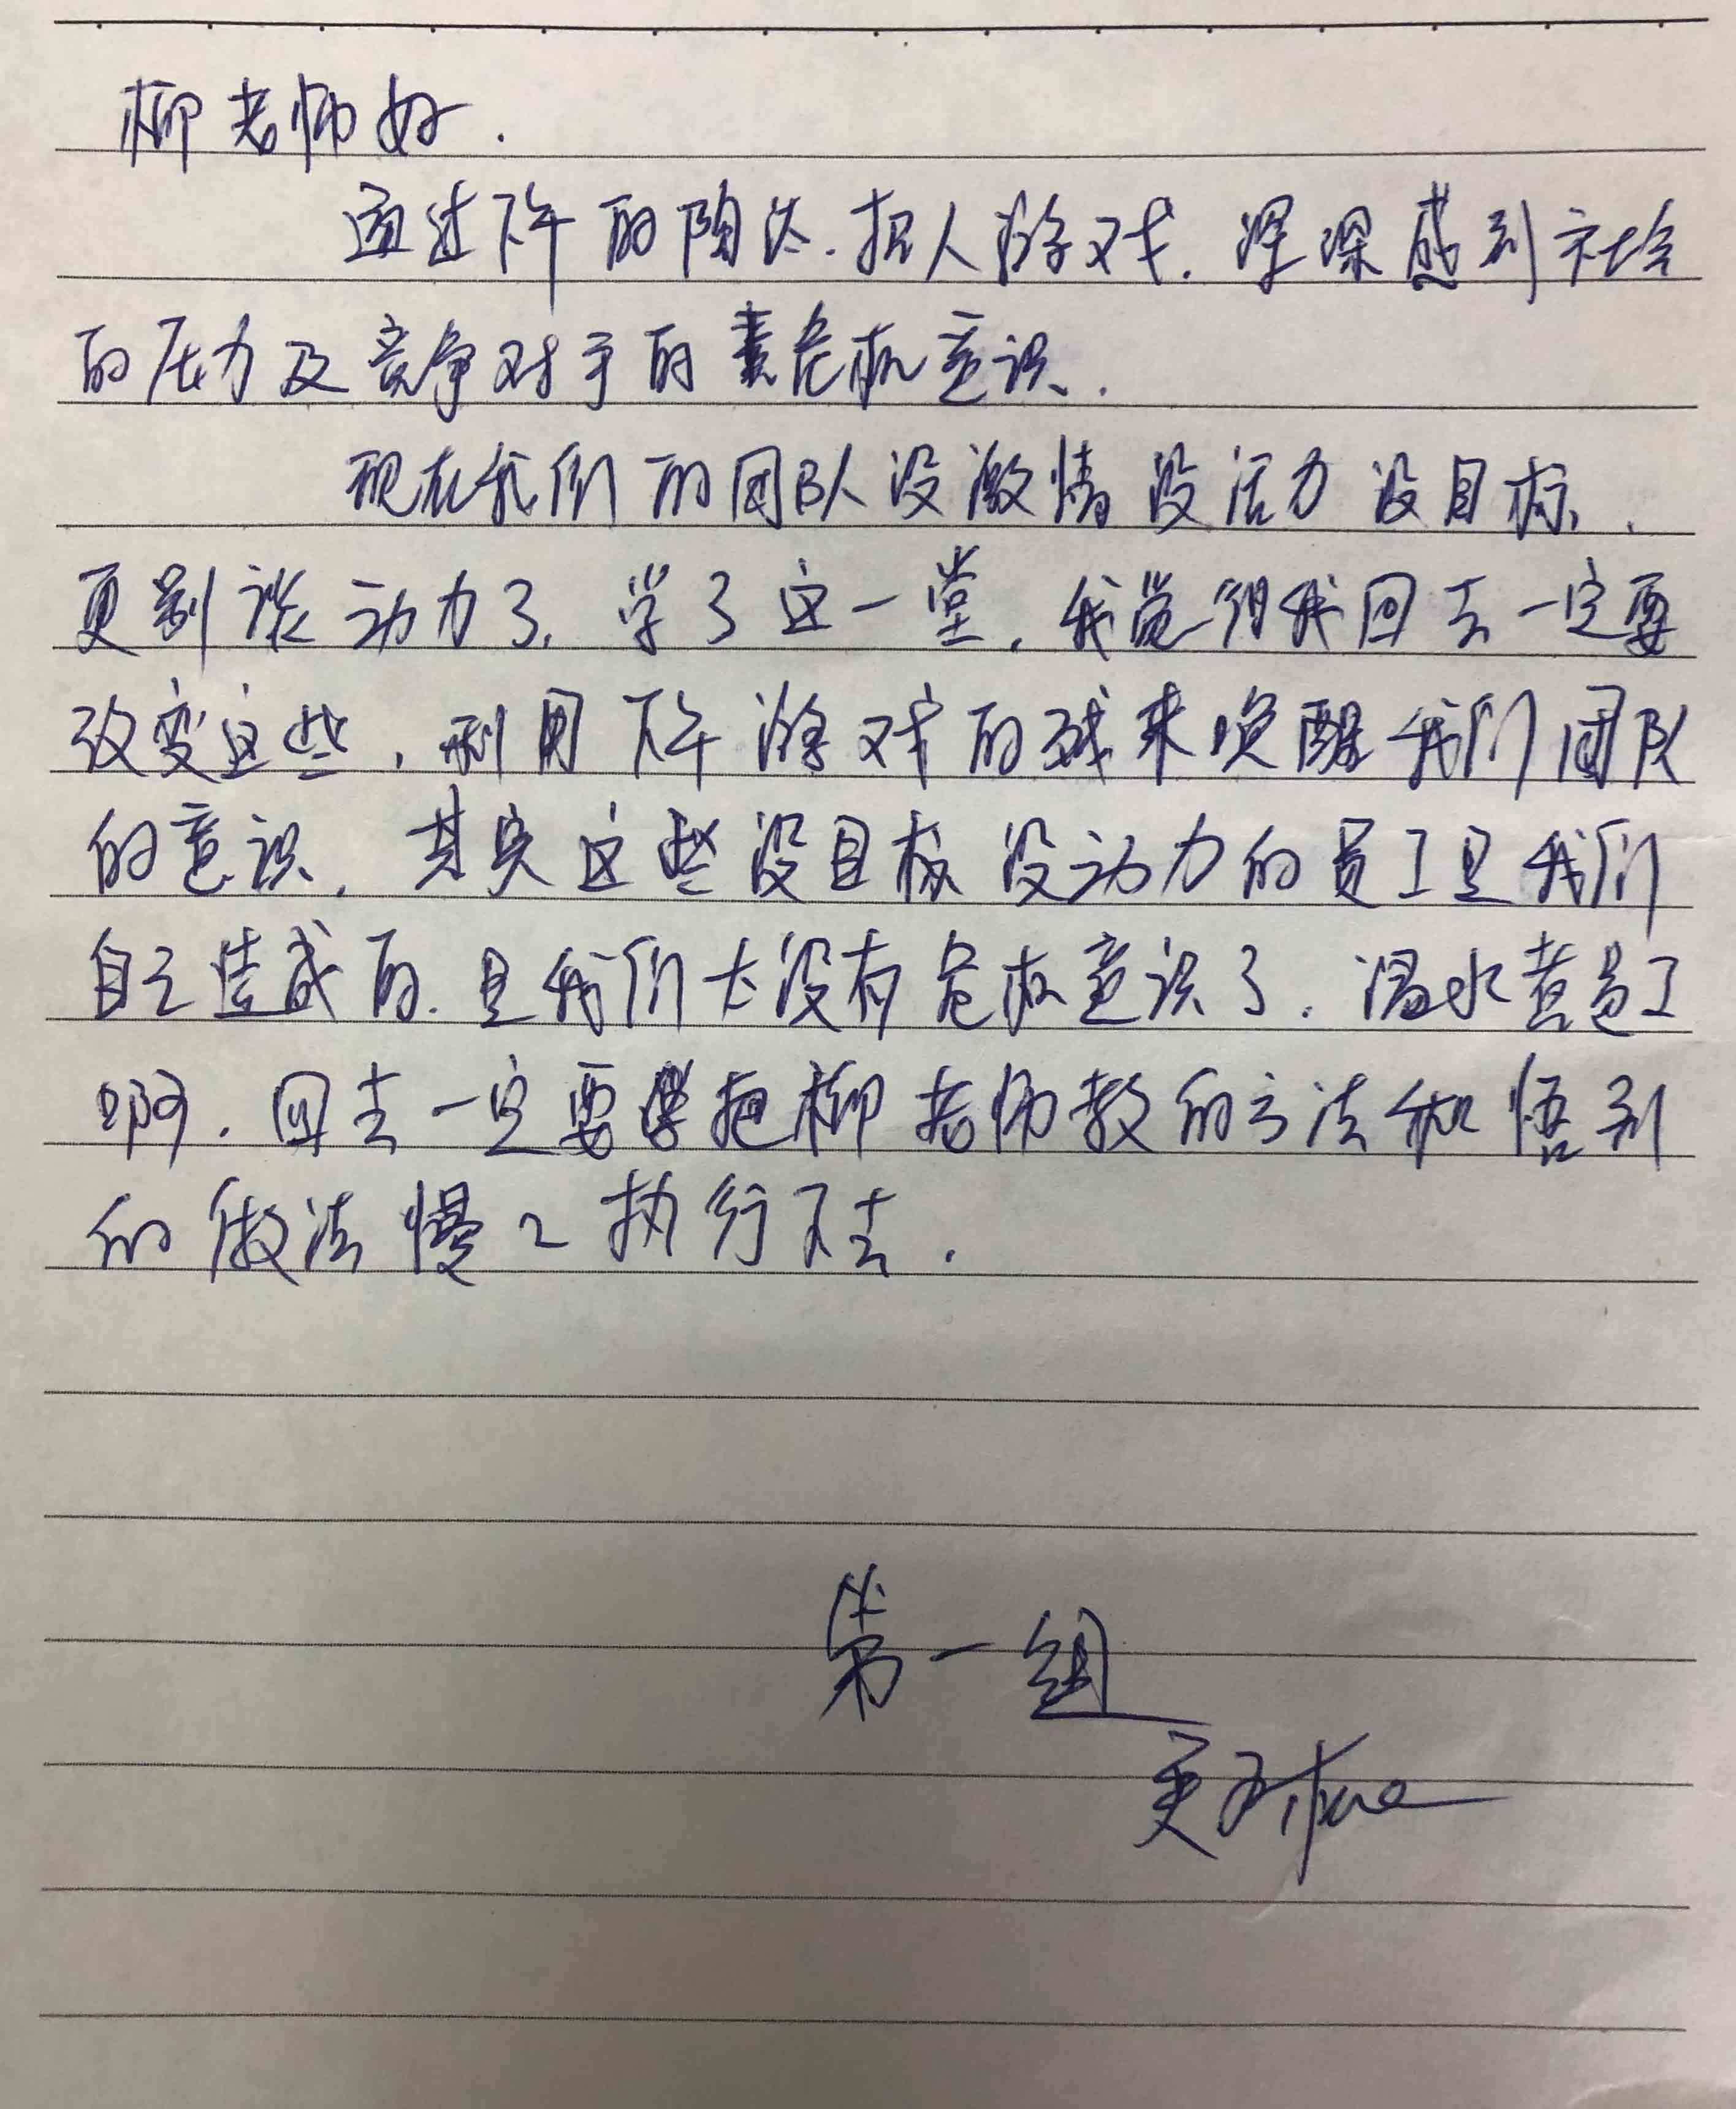 柳老师好.
通过下午的陶汰.招人游戏.深深感到社会
的压力及竞争对手的危机意识.
现在我们的团队没激情没活力没目标.
更别谈动力了,学了这一堂,我觉得我回去一定要
改变这些,利用下午游戏的 来唤醒我们团队
的意识,其实这些没目标没动力的员工是我们
自己造成的.是我们太没有危机意识了.温水煮员工
啊.回去一定要把柳老师教的方法和悟到
的做法慢々执行下去.
第一组